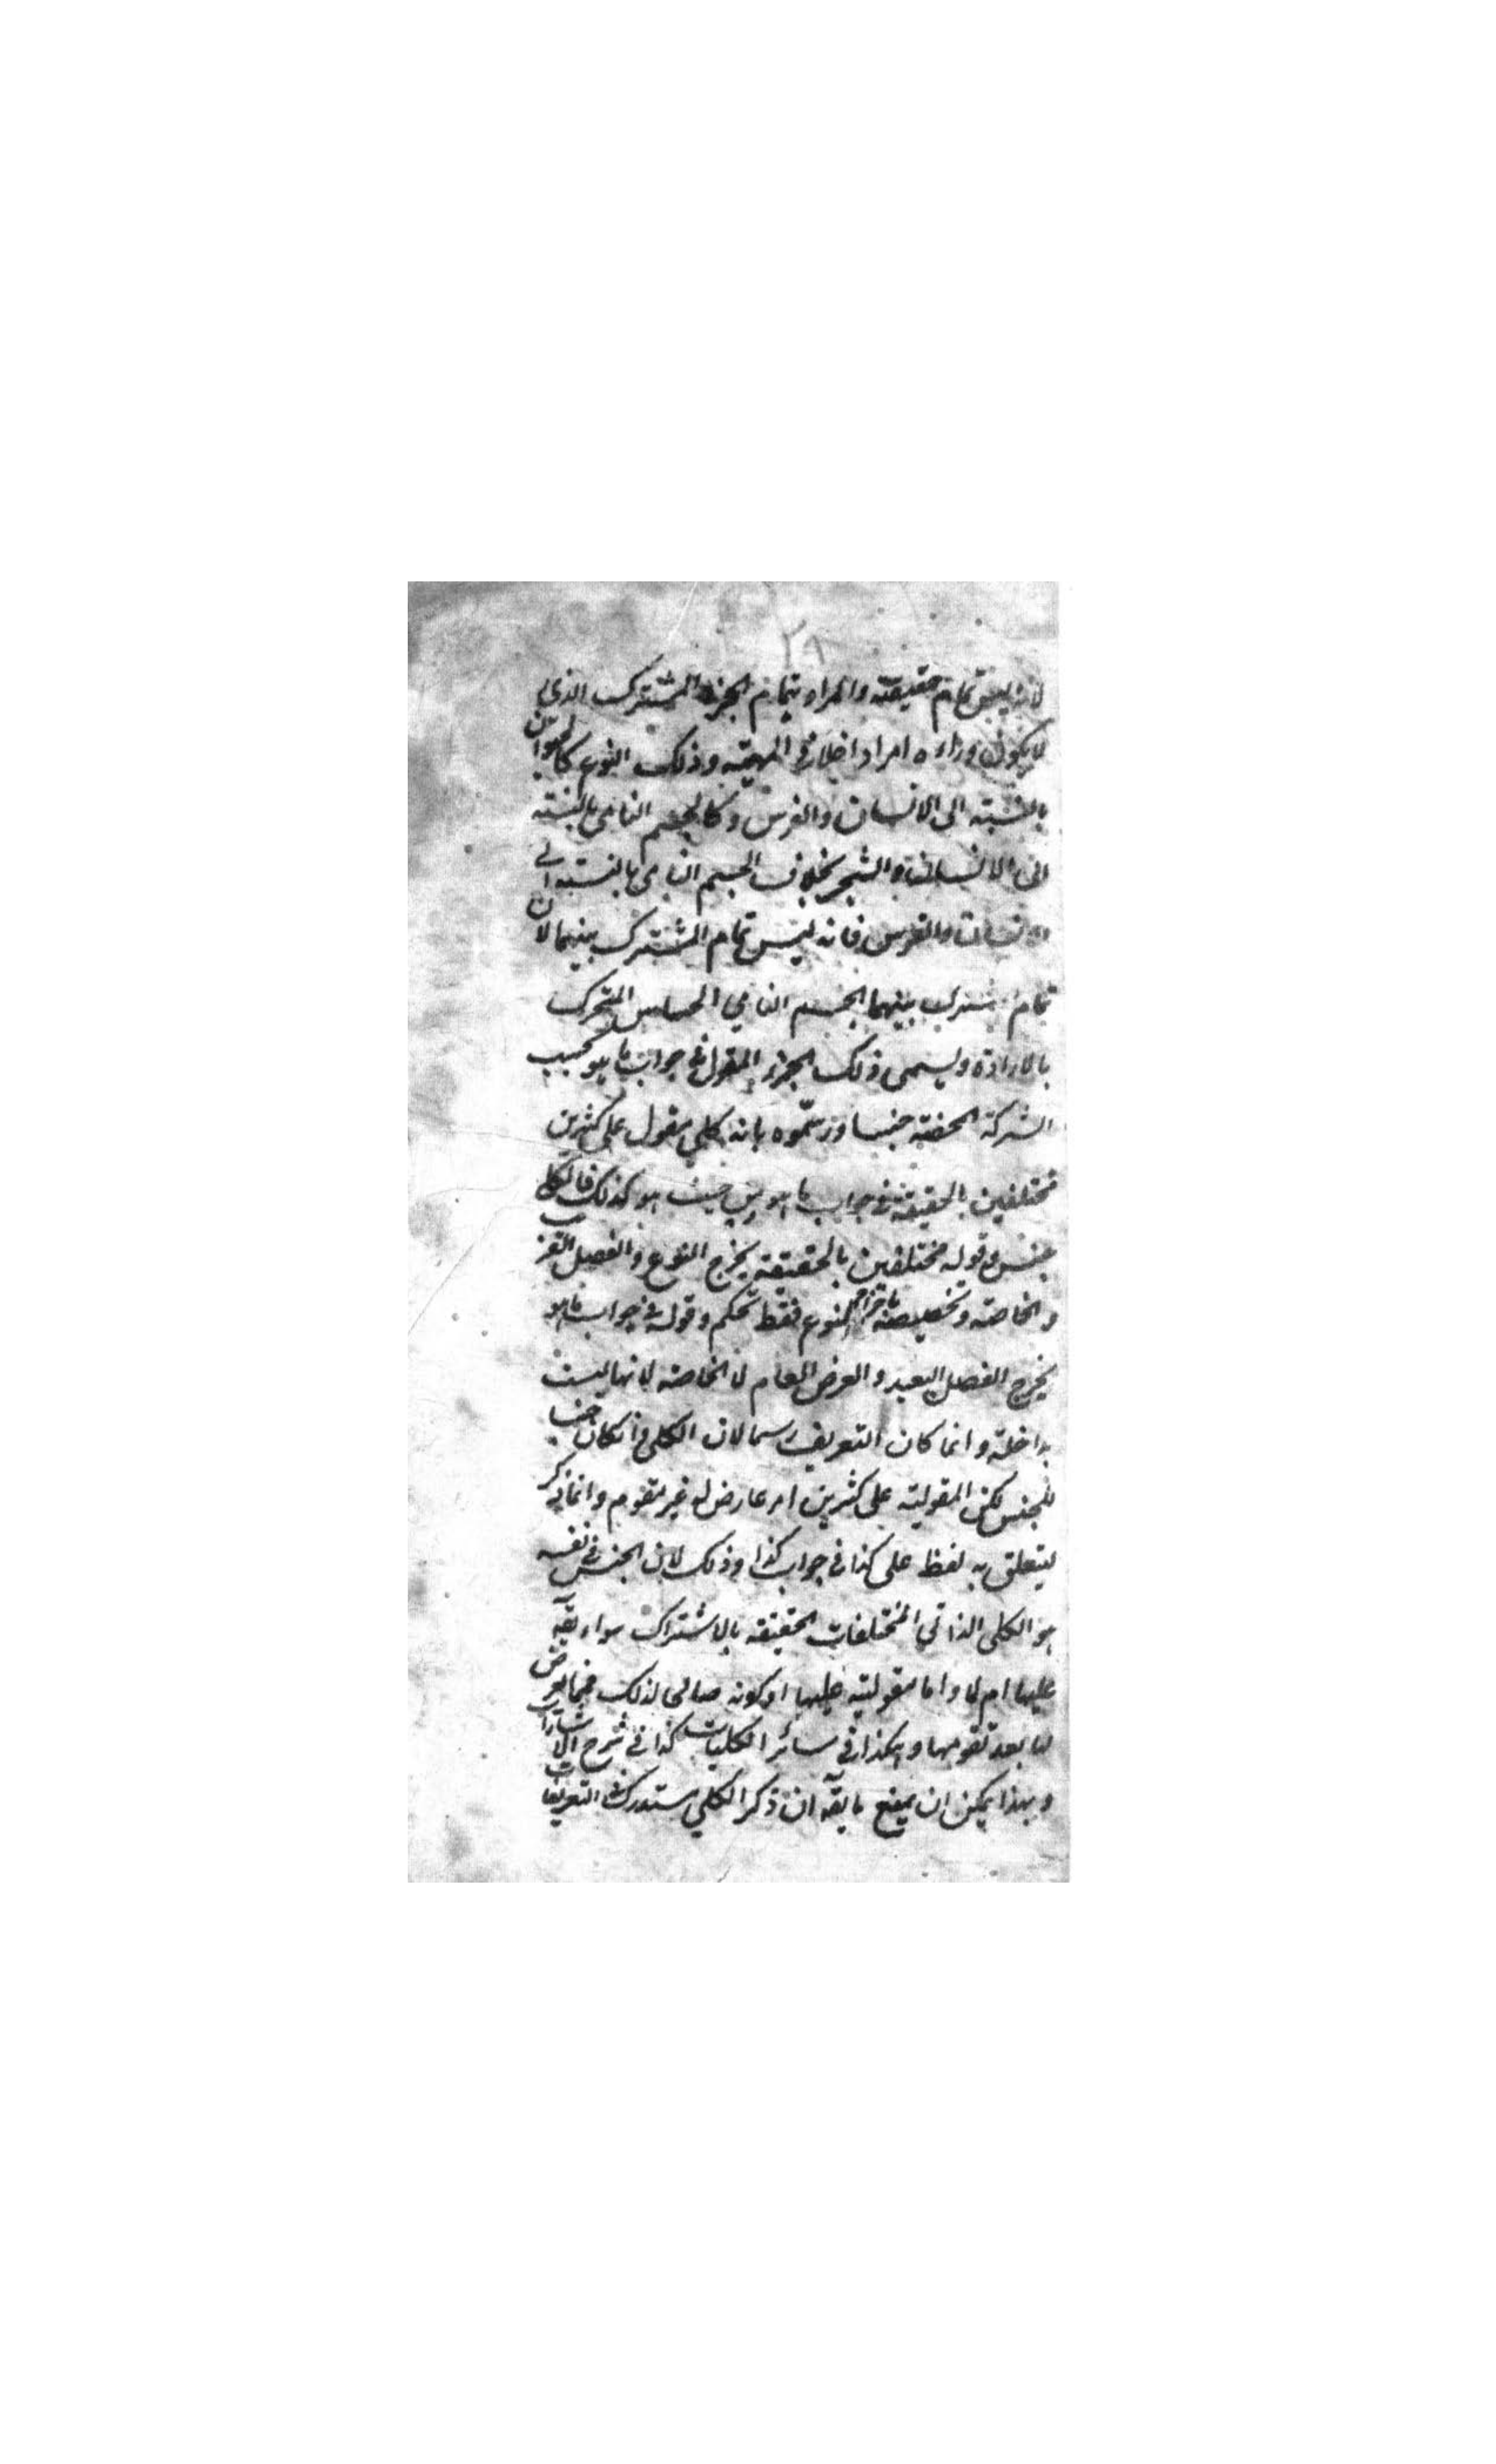 ٢٨
لانه ليس تمام حقيقته والمراد بتمام الجزء المشترك الذى
لا يكون وراءه امرا داخلا فى المهية وذلك النوع كالحيوان
بالنسبة الى الانسان والفرس وكالجسم النامى بالنسبة
الى الانسان والشجر بخلاف الجسم النامى بالنسبة الى
الانسان والفرس فانه ليس تمام المشترك بينهما لان
تمام المشترك بينهما الجسم النامي الحساس المتحرك
بالارادة ويسمى ذلك الجزء المقول فى جواب ما هو بحسب
الشركة المحضة جنسا ورسموه بانه كلي مقول على كثيرين
مختلفين بالحقيقة فى جواب ما هو من حيث هو كذلك فالكلى
جنس وقوله مختلفين بالحقيقة يخرج النوع والفصل القريب
والخاصة وتخصيصه باخراج النوع فقط تحكم وقوله فى جواب ما هو
يخرج الفصل البعيد والعرض العام لا الخاصة لانها ليست
بداخلة وانما كان التعريف رسما لان الكلى وانكان جنسا
للجنس لكن المقولية على كثيرين امر عارض له غير مقوم وانما ذكر
ليتعلق به لفظ على كذا فى جواب كذا وذلك لان الجنس فى نفسه
هو الكلى الذاتي المختلفات الحقيقة بالاشتراك سواء يقه
عليها ام لا واما مقوليته عليها او كونه صالحا لذلك فمما يعرض
لها بعد تقومها وهكذا فى سائر الكليات كذا فى شرح الاشارات
وبهذا يمكن ان يمنع ما يقه ان ذكر الكلي مستدرك فى التعريفات